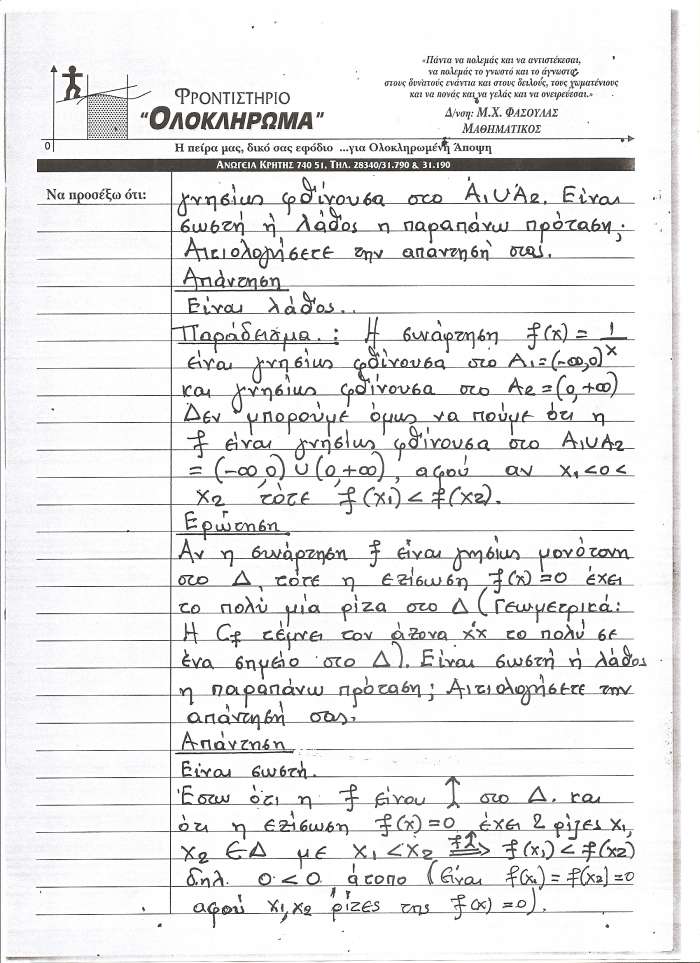 «Πάντα να πολεμάς και να αντιστέκεσαι,
να πολεμάς το γνωστό και το άγνωστο,
στους δυνατούς ενάντια και στους δειλούς, τους χωματένιους
και να πονάς και να γελάς και να ονειρεύεσαι.»
Δ/νση: Μ.Χ. ΦΑΣΟΥΛΑΣ
ΜΑΘΗΜΑΤΙΚΟΣ
ΦΡΟΝΤΙΣΤΗΡΙΟ
"ΟΛΟΚΛΗΡΩΜΑ"
0
Η πείρα μας, δικό σας εφόδιο ...για Ολοκληρωμένη Άποψη
ΑΝΩΓΕΙΑ ΚΡΗΤΗΣ 740 51, ΤΗΛ. 28340/31.790 & 31.190
Να προσέξω ότι:
γνησίως φθίνουσα στο Α₁∪Α₂. Είναι
σωστή ή λάθος η παραπάνω πρόταση;
Αιτιολογήσετε την απάντησή σας.
Απάντηση
Είναι λάθος..
Παράδειγμα.: Η συνάρτηση f(x) = 1/x
είναι γνησίως φθίνουσα στο Α₁=(-∞,0)
και γνησίως φθίνουσα στο Α₂=(0,+∞)
Δεν μπορούμε όμως να πούμε ότι η
f είναι γνησίως φθίνουσα στο Α₁∪Α₂
= (-∞,0) ∪ (0,+∞), αφού αν x₁<0<
x₂ τότε f(x₁) < f(x₂).
Ερώτηση
Αν η συνάρτηση f είναι γνησίως μονότονη
στο Δ, τότε η εξίσωση f(x)=0 έχει
το πολύ μία ρίζα στο Δ (Γεωμετρικά:
Η Cf τέμνει τον άξονα x'x το πολύ σε
ένα σημείο στο Δ). Είναι σωστή ή λάθος
η παραπάνω πρόταση; Αιτιολογήσετε την
απάντησή σας.
Απάντηση
Είναι σωστή.
Έστω ότι η f είναι ↑ στο Δ. και
ότι η εξίσωση f(x)=0 έχει 2 ρίζες x₁,
x₂ ∈Δ με x₁<x₂ f↑⟹ f(x₁)<f(x₂)
δηλ. 0<0 άτοπο (Είναι f(x₁)=f(x₂)=0
αφού x₁,x₂ ρίζες της f(x)=0).